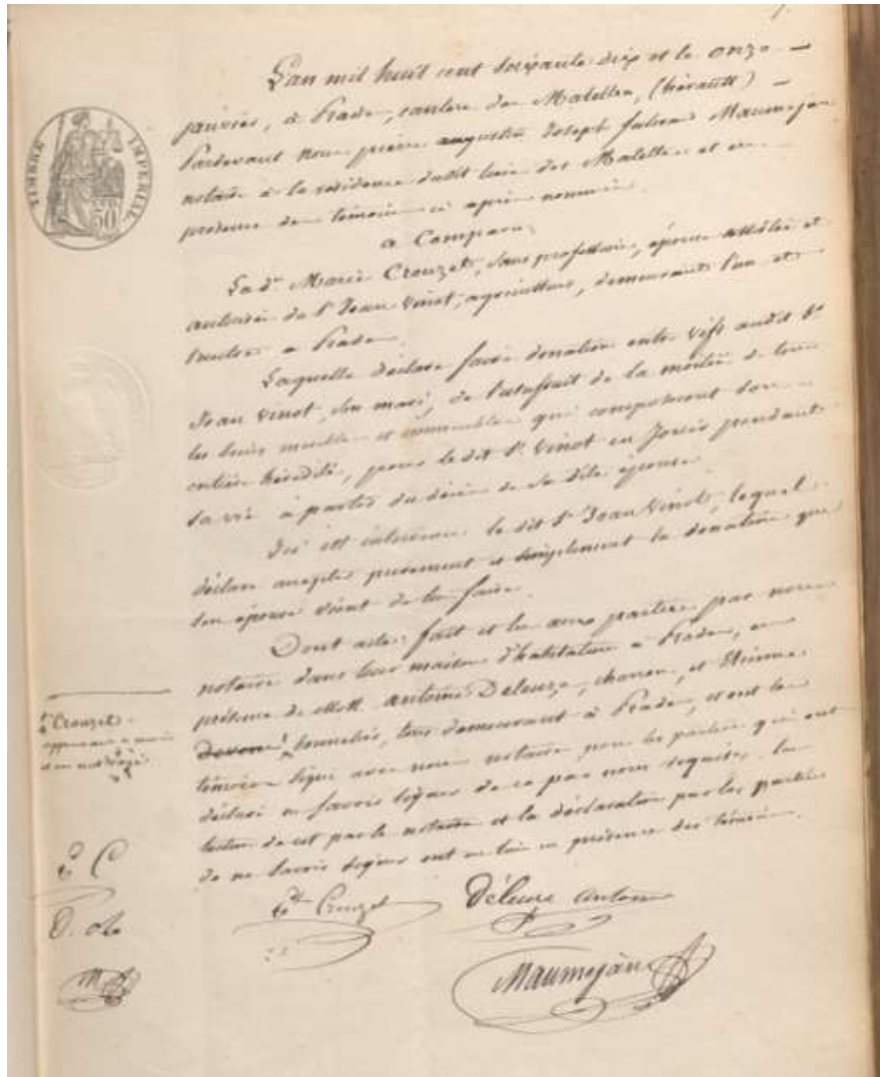 L'an mil huit cent soixante dix et le onze
janvier, à Prades, canton des Matelles, (hérault)
Pardevant nous pierre augustin Joseph fulcrand Maumejan
notaire à la résidence dudit lieu des Matelles et en
présence des témoins ci après nommés.
a Comparu:
La de Marie Crouzet, sans profession, épouse assistée et
autorisée du sr Jean Vinot, agriculteur, demeurant l'un et
l'autre à Prades.
Laquelle déclare faire donation entre vifs audit sr
Jean Vinot, son mari, de l'usufruit de la moitié de tous
les biens meubles et immeubles qui composeront son
entière hérédité, pour le dit sr Vinot en Jouir pendant
sa vie à partir du décès de sa dite épouse.
Ici est intervenu le dit sr Jean Vinot, lequel
déclare accepter purement et simplement la donation que
son épouse vient de lui faire.
Dont acte: fait et lu aux parties par nous
notaire dans leur maison d'habitation à Prades, en
présence de MM. antoine Deleuze, charron, et Etienne
bonnelier, tous demeurant à Prades, et ont les
témoins signé avec nous notaire, non les parties qui ont
déclaré ne savoir signer de ce par nous requises. La
lecture de cet par le notaire et la déclaration par les parties
de ne savoir signer ont eu lieu en présence des témoins.
TIMBRE IMPERIAL
50
Crouzet
E C
D. A
M
Et Crouzet
Déleuze antoine
Maumejan